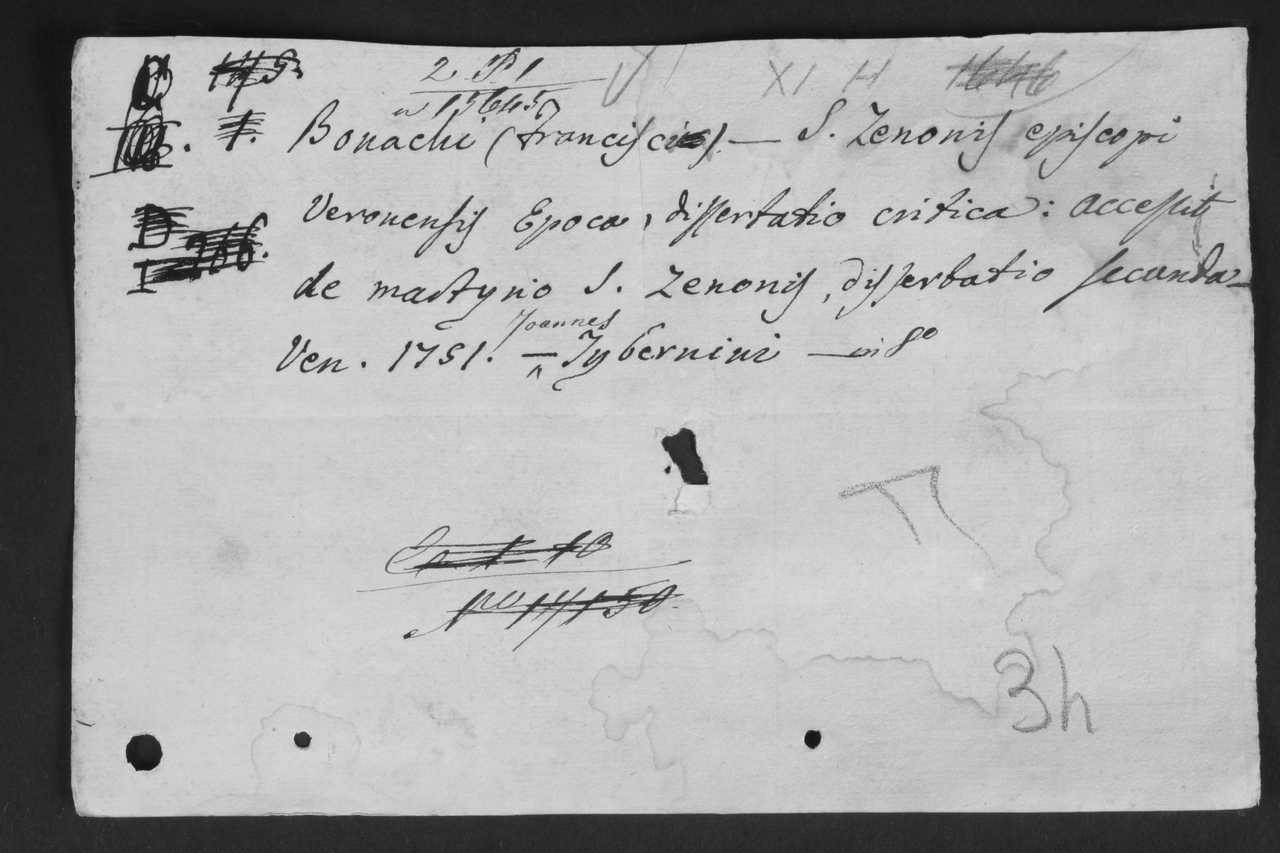 2 P 1
n 15645
XI H
Bonachi (Francisci) — S. Zenonis episcopi
Veronensis Epoca, dissertatio critica: accessit
de martyrio S. Zenonis, dissertatio secunda
Joannes
Ven. 1751. — Tybernini — in 8o
No 14150
3h